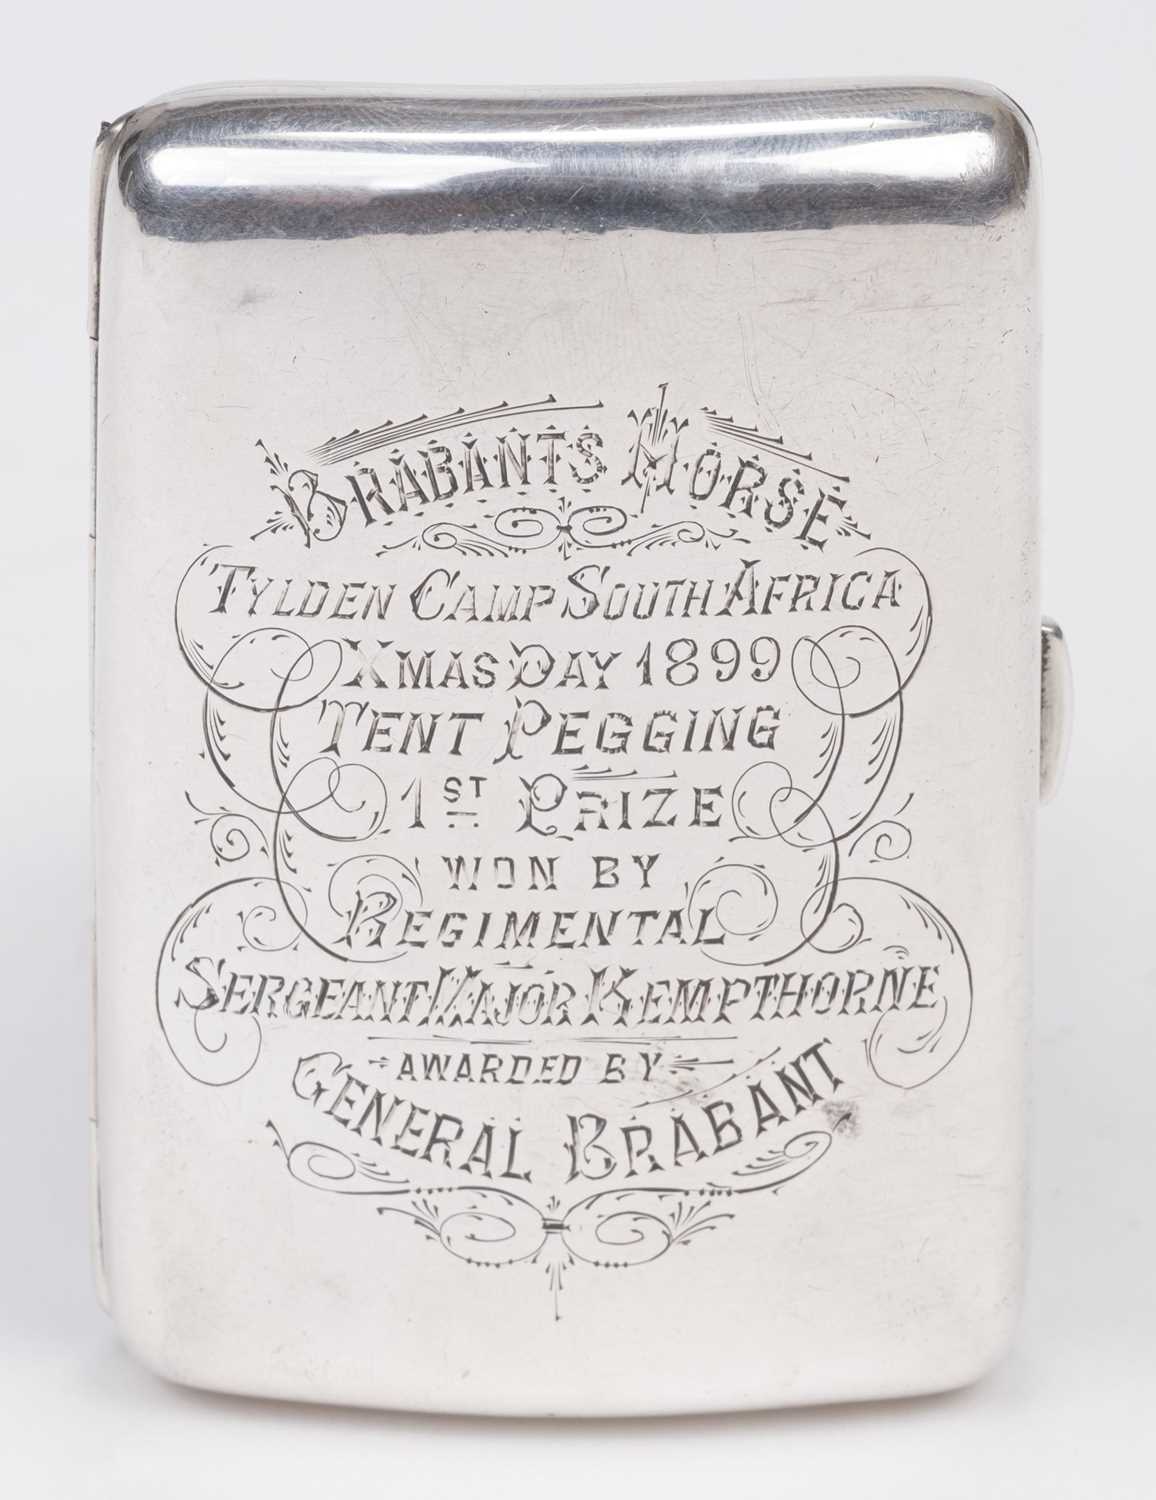 BRABANTS HORSE
TYLDEN CAMP SOUTH AFRICA
XMAS DAY 1899
TENT PEGGING
1ST PRIZE
WON BY
REGIMENTAL
SERGEANT MAJOR KEMPTHORNE
AWARDED BY
GENERAL BRABANT